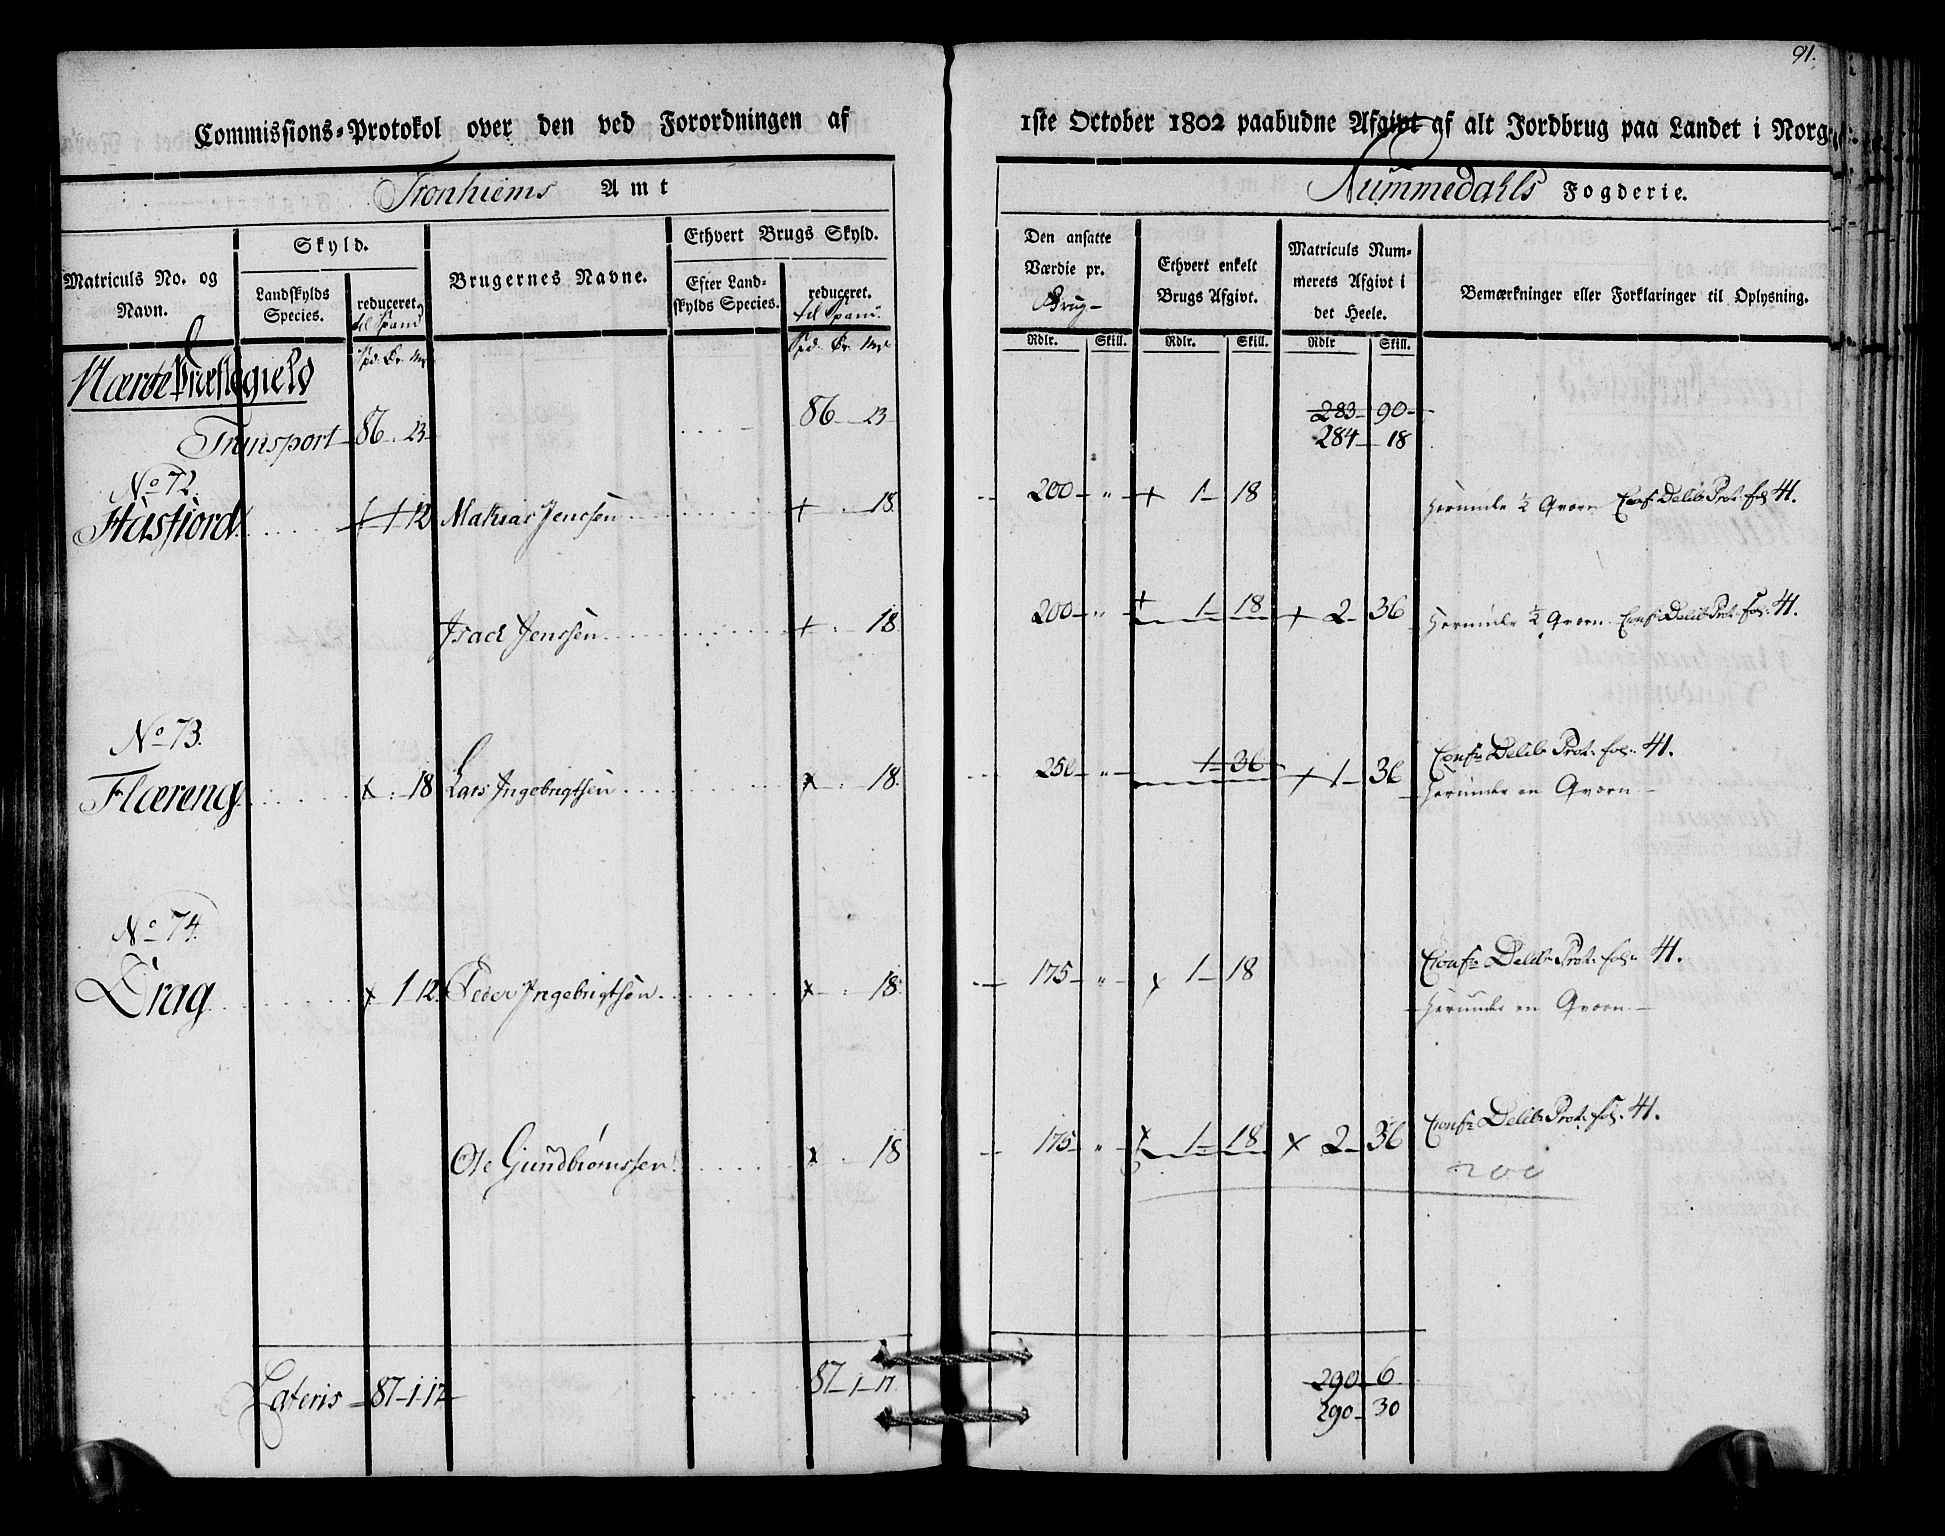 91.
Commissions-Protokol over den ved Forordningen af 1ste October 1802 paabudne Afgivt af alt Jordbrug paa Landet i Norg
Tronhiems Amt
Nummedahls Fogderie.
Matriculs No. og Navn.
Skyld.
Landskylds Species.
reduceret til Spand
Brugernes Navne.
Ethvert Brugs Skyld.
Efter Landskylds Species.
reduceret. til Spand.
Den ansatte Værdie pr. Brug-
Ethvert enkelt Brugs Afgivt.
Matriculs Nummerets Afgivt i det Heele.
Bemærkninger eller Forklaringer til Oplysning.
Rdlr. Skill. Rdlr. Skill. Rdlr Skill.
Nærøe Præstegield
Transport 86 . 23 86 23 283 90
284 18
No 72.
Huusfiord 1 12 Mathias Jenssen 18 200 " 1 18 Herunder ½ Qværn Conf: Delib: Prot: fol: 41.
Isach Jenssen 18 200 " 1 18 2 36 Herunder ½ Qværn Conf: Delib: Prot: fol: 41.
No 73.
Flæreng 18 Lars Ingebrigtsen 18. 250 " 1 36 1 36 Conf: Delib: Prot: fol: 41.
Herunder en Qværn
No 74.
Drag 1 12 Peder Ingebrigtsen 18 175 " 1 18 Conf: Delib: Prot: fol: 41.
Herunder en Qværn
Ole Gundbiørnssen 18 175 " 1 18 2 36 Conf: Delib: Prot: fol: 41.
200
Lateris 87 1 17 87 1 17 290 6
290 30